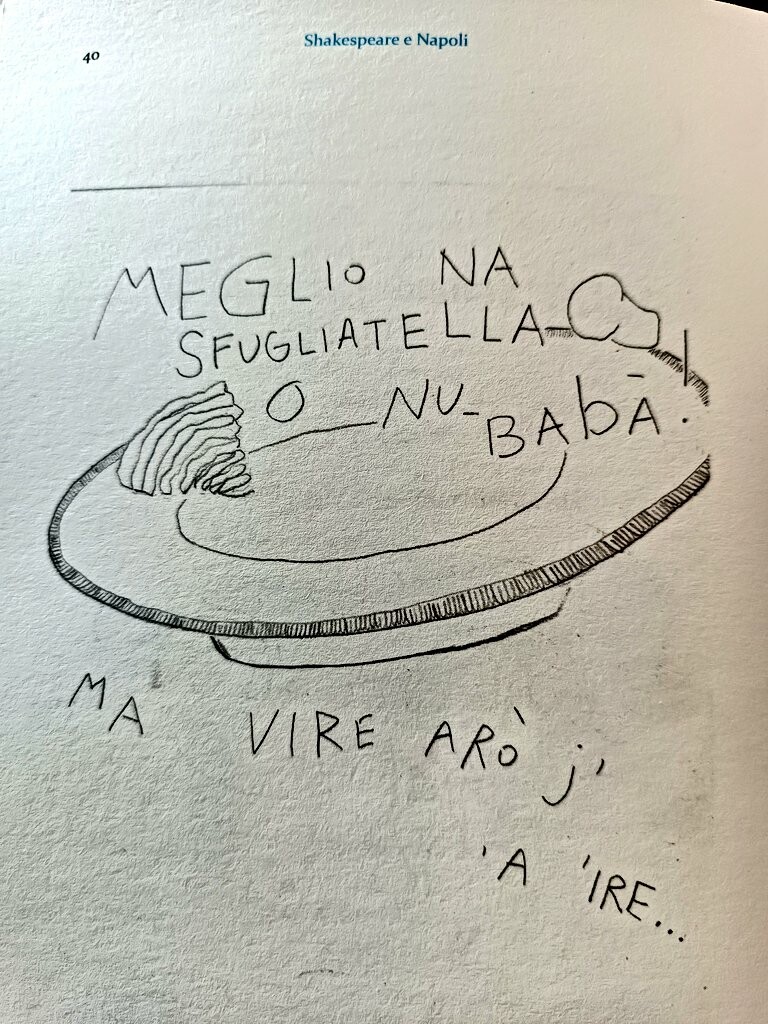 40
Shakespeare e Napoli
MEGLIO NA
SFUGLIATELLA
O NU
BABÀ!
MA VIRE ARÒ j'
'A 'IRE...